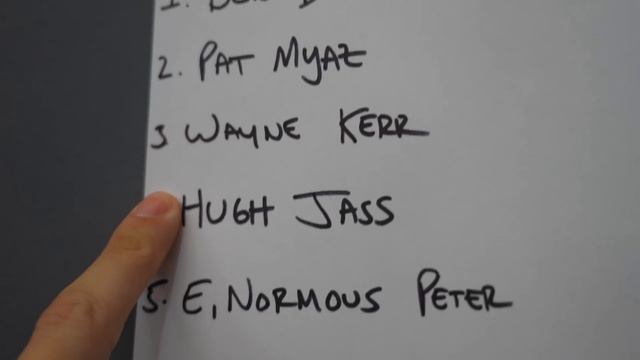 2. PAT MYAZ
3 WAYNE KERR
HUGH JASS
5. E, NORMOUS PETER